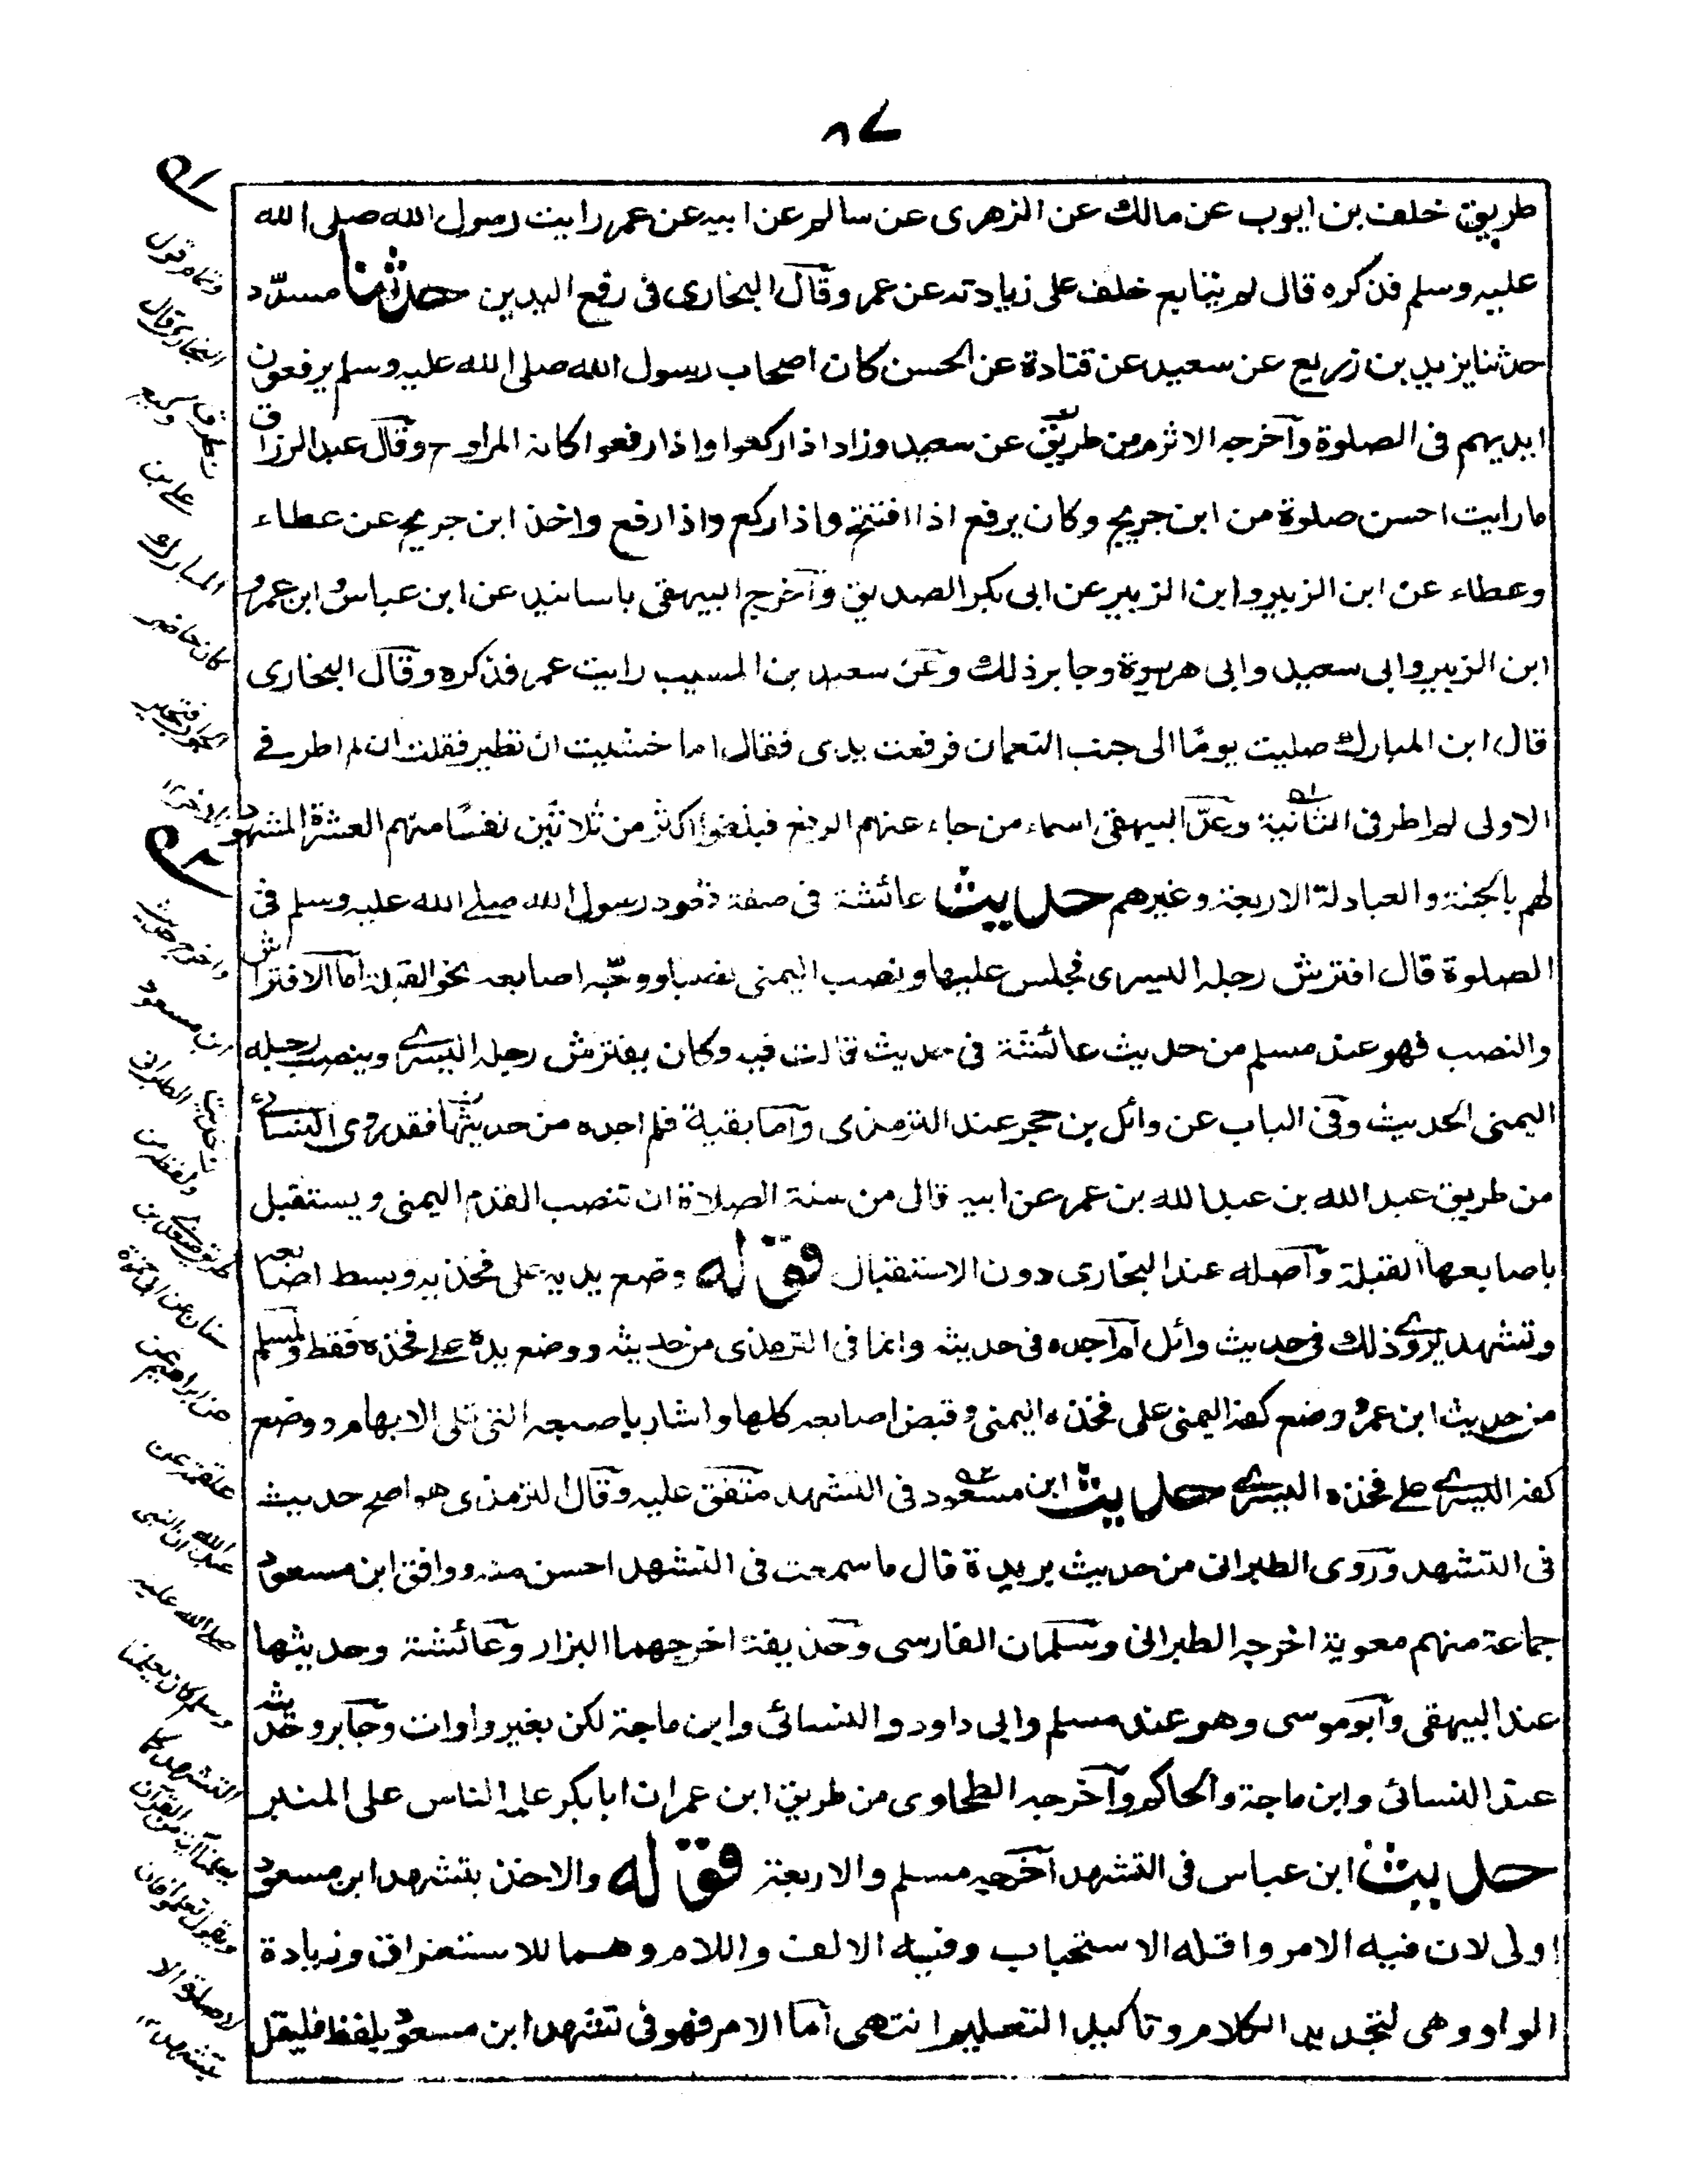 ٨٧
طريق خلف بن ايوب عن مالك عن الزهرى عن سالم عن ابيه عن عمر رايت رسول الله صلى الله
عليه وسلم فذكره قال لم يتابع خلف على زيادته عن عمر وقال البخارى فى رفع اليدين حدثنا مسدّد
حدثنا يزيد بن زريع عن سعيد عن قتادة عن الحسن كان اصحاب رسول الله صلى الله عليه وسلم يرفعون
ايديهم فى الصلوة وآخرجه الاثرم من طريق عن سعيد وزاد اذا ركعوا واذا رفعوا كانه المراوح وقال عبد الرزاق
ما رايت احسن صلوة من ابن جريج وكان يرفع اذا افتتح واذا ركع واذا رفع واخذ ابن جريج عن عطاء
وعطاء عن ابن الزبير وابن الزبير عن ابى بكر الصديق وآخرج البيهقى باسانيد عن ابن عباس وابن عمر و
ابن الزبير وابى سعيد وابى هريرة وجابر ذلك وعن سعيد بن المسيب رايت عمر فذكره وقال البخارى
قال ابن المبارك صليت يومًا الى جنب النعمان فرفعت يدى فقال اما خشيت ان تطير فقلت ان لم اطر فے
الاولى لم اطر فى الثانية وعدّ البيهقى اسماء من جاء عنهم الرفع فبلغوا اكثر من ثلاثين نفسًا منهم العشرة المشهود
لهم بالجنة والعبادلة الاربعة وغيرهم حديث عائشة فى صفة قعود رسول الله صلے الله عليه وسلم فى
الصلوة قال افترش رجله اليسرى فجلس عليها ونصب اليمنى نصبا ووجّه اصابعه نحو القبلة اما الافتراش
والنصب فهو عند مسلم من حديث عائشة فى حديث قالت فيه وكان يفترش رجله اليسرے وينصب رجله
اليمنى الحديث وفى الباب عن وائل بن حجر عند الترمذى وآما بقية فلم اجده من حديثها فقد روى النسائے
من طريق عبد الله بن عبد الله بن عمر عن ابيه قال من سنة الصلاة ان تنصب القدم اليمنى ويستقبل
باصابعها القبلة وآصله عند البخارى دون الاستقبال قوله وضع يديه على فخذيه وبسط اصابعه
وتشهد يروے ذلك فى حديث وائل لم اجده فى حديثه وانما فى الترمذى من حديثه ووضع يده علے فخذه فقط ولمسلم
من حديث ابن عمر وضع كفه اليمنى على فخذه اليمنى وقبض اصابعه كلها واشار باصبعه التى تلى الابهام ووضع
كفه اليسرے علے فخذه اليسرے حديث ابن مسعود فى التشهد متفق عليه وقال الترمذى هو اصح حديث
فى التشهد وروى الطبرانى من حديث بريدة قال ما سمعت فى التشهد احسن منه ووافق ابن مسعود
جماعة منهم معوية اخرجه الطبرانى وسلمان الفارسى وحذيفة اخرجهما البزار وعائشة وحديثها
عند البيهقى وآبو موسى وهو عند مسلم وابى داود والنسائى وابن ماجة لكن بغير واوات وجابر وحديثه
عند النسائى وابن ماجة والحاكم وآخرجه الطحاوى من طريق ابن عمر ان ابا بكر علمه الناس على المنبر
حديث ابن عباس فى التشهد آخرجه مسلم والاربعة قوله والاخذ بتشهد ابن مسعود
اولى لان فيه الامر واقله الاستحباب وفيه الالف واللام وهما للاستغراق وزيادة
الواو وهى لتجديد الكلام وتاكيد التعليم انتهى آما الامر فهو فى تشهد ابن مسعود بلفظ فليقل
وتمام قول
البخارى قال
وكيع
على بن
المبارك
كان حاضر
واخرج حديث
ابن مسعود
الطبرانى
ولفظه من
علقمة عن
عبد الله ان النبى
صلے الله عليه
وسلم كان يعلمنا
التشهد كما
يعلمنا آية من القرآن
ويقول تعلموا فان
لا صلوة الا
بتشهد ١٢